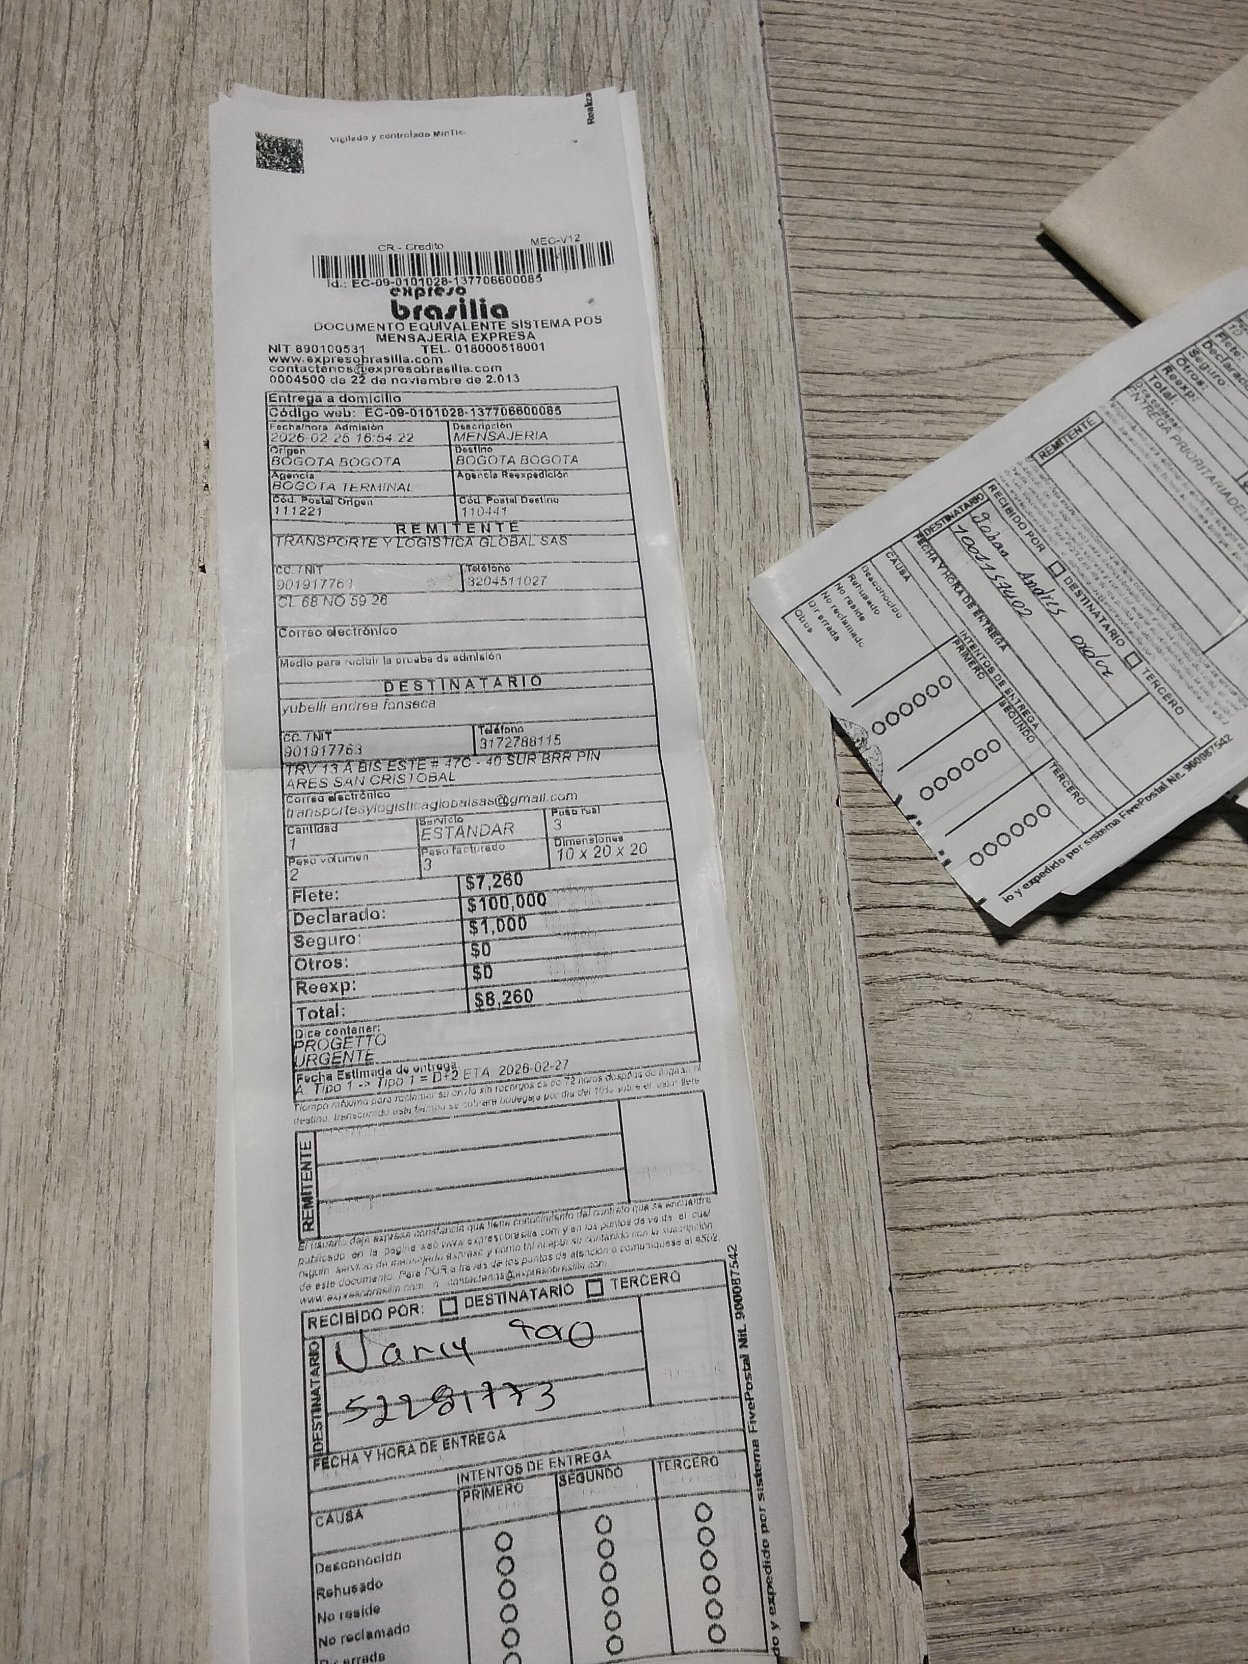 Vigilado y controlado MinTic.
Realiza
CR - Credito MEC-V12
Id.: EC-09-0101028-137706600085
expreso
brasilia
DOCUMENTO EQUIVALENTE SISTEMA POS
MENSAJERIA EXPRESA
NIT 890100531 TEL. 018000518001
www.expresobrasilia.com
contactenos@expresobrasilia.com
0004500 de 22 de noviembre de 2.013
Entrega a domicilio
Código web: EC-09-0101028-137706600085
Fecha/hora Admisión Descripción
2026-02-25 16:54:22 MENSAJERIA
Origen Destino
BOGOTA BOGOTA BOGOTA BOGOTA
Agencia Agencia Reexpedición
BOGOTA TERMINAL
Cód. Postal Origen Cód. Postal Destino
111221 110441
REMITENTE
TRANSPORTE Y LOGISTICA GLOBAL SAS
CC. / NIT Teléfono
901917763 3204511027
CL 68 NO 59 26
Correo electrónico
Medio para recibir la prueba de admisión
DESTINATARIO
yubelli andrea fonseca
CC. / NIT Teléfono
901917763 3172788115
TRV 13 A BIS ESTE # 47C - 40 SUR BRR PIN
ARES SAN CRISTOBAL
Correo electrónico
transportesylogisticaglobalsas@gmail.com
Cantidad Servicio Peso real
1 ESTANDAR 3
Peso volumen Peso facturado Dimensiones
2 3 10 x 20 x 20
Flete: $7,260
Declarado: $100,000
Seguro: $1,000
Otros: $0
Reexp: $0
Total: $8,260
Dice contener:
PROGETTO
URGENTE
Fecha Estimada de entrega
A. Tipo 1 -> Tipo 1 = D+2 ETA: 2026-02-27
Tiempo máximo para reclamar su envío sin recargos es de 72 horas después de llegada al
destino, transcurrido este tiempo se cobrará bodegaje por día del 10% sobre el valor flete
REMITENTE
El usuario deja expresa constancia que tiene conocimiento del contrato que se encuentra
publicado en la página web www.expresobrasilia.com y en los puntos de venta, el cual
regula servicio de mensajería expresa y como tal acepta su contenido con la suscripción
de este documento. Para PQR a través de los puntos de atención o comuníquese al
www.expresobrasilia.com o contactenos@expresobrasilia.com
RECIBIDO POR: DESTINATARIO TERCERO
DESTINATARIO
Nancy Toro
52281773
FECHA Y HORA DE ENTREGA
INTENTOS DE ENTREGA
CAUSA PRIMERO SEGUNDO TERCERO
Desconocido
Rehusado
No reside
No reclamado
Dir errada
do y expedido por sistema FivePostal Nit. 900087542
Flete:
Declarado
Seguro
Otros:
Reexp:
Total:
ENTREGA PRIORITARIA
REMITENTE
RECIBIDO POR: DESTINATARIO TERCERO
DESTINATARIO
Andres
FECHA Y HORA DE ENTREGA
INTENTOS DE ENTREGA
CAUSA PRIMERO SEGUNDO TERCERO
Desconocido
Rehusado
No reside
No reclamado
Dir errada
Otros
io y expedido por sistema FivePostal Nit. 900087542